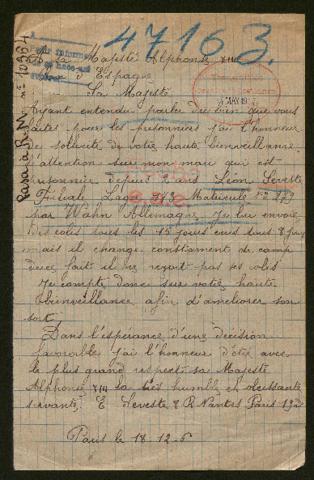 47163.
A Sa Majesté Alphonse XIII
Roi d'Espagne
Sa Majesté
Ayant entendu parler du bien que vous
faites pour les prisonniers j'ai l'honneur
de solliciter de votre haute bienveillance
l'attention sur mon mari qui est
prisonnier depuis 2 ans Léon Leveste
Filiale Lager
par Wahn Allemagne Je lui envoie
des colis tous les 15 jours
mais il change constament de camp
de ce fait il ne reçoit pas ses colis
Je compte donc sur votre haute
bienveillance afin d'améliorer son
sort
Dans l'espérance d'une décision
favorable j'ai l'honneur d'être avec
le plus grand respect sa Majesté
Alphonse XIII la très humble et obeissante
servante E Leveste 8 R Nantes Paris 19e
Paris le 18.12.6